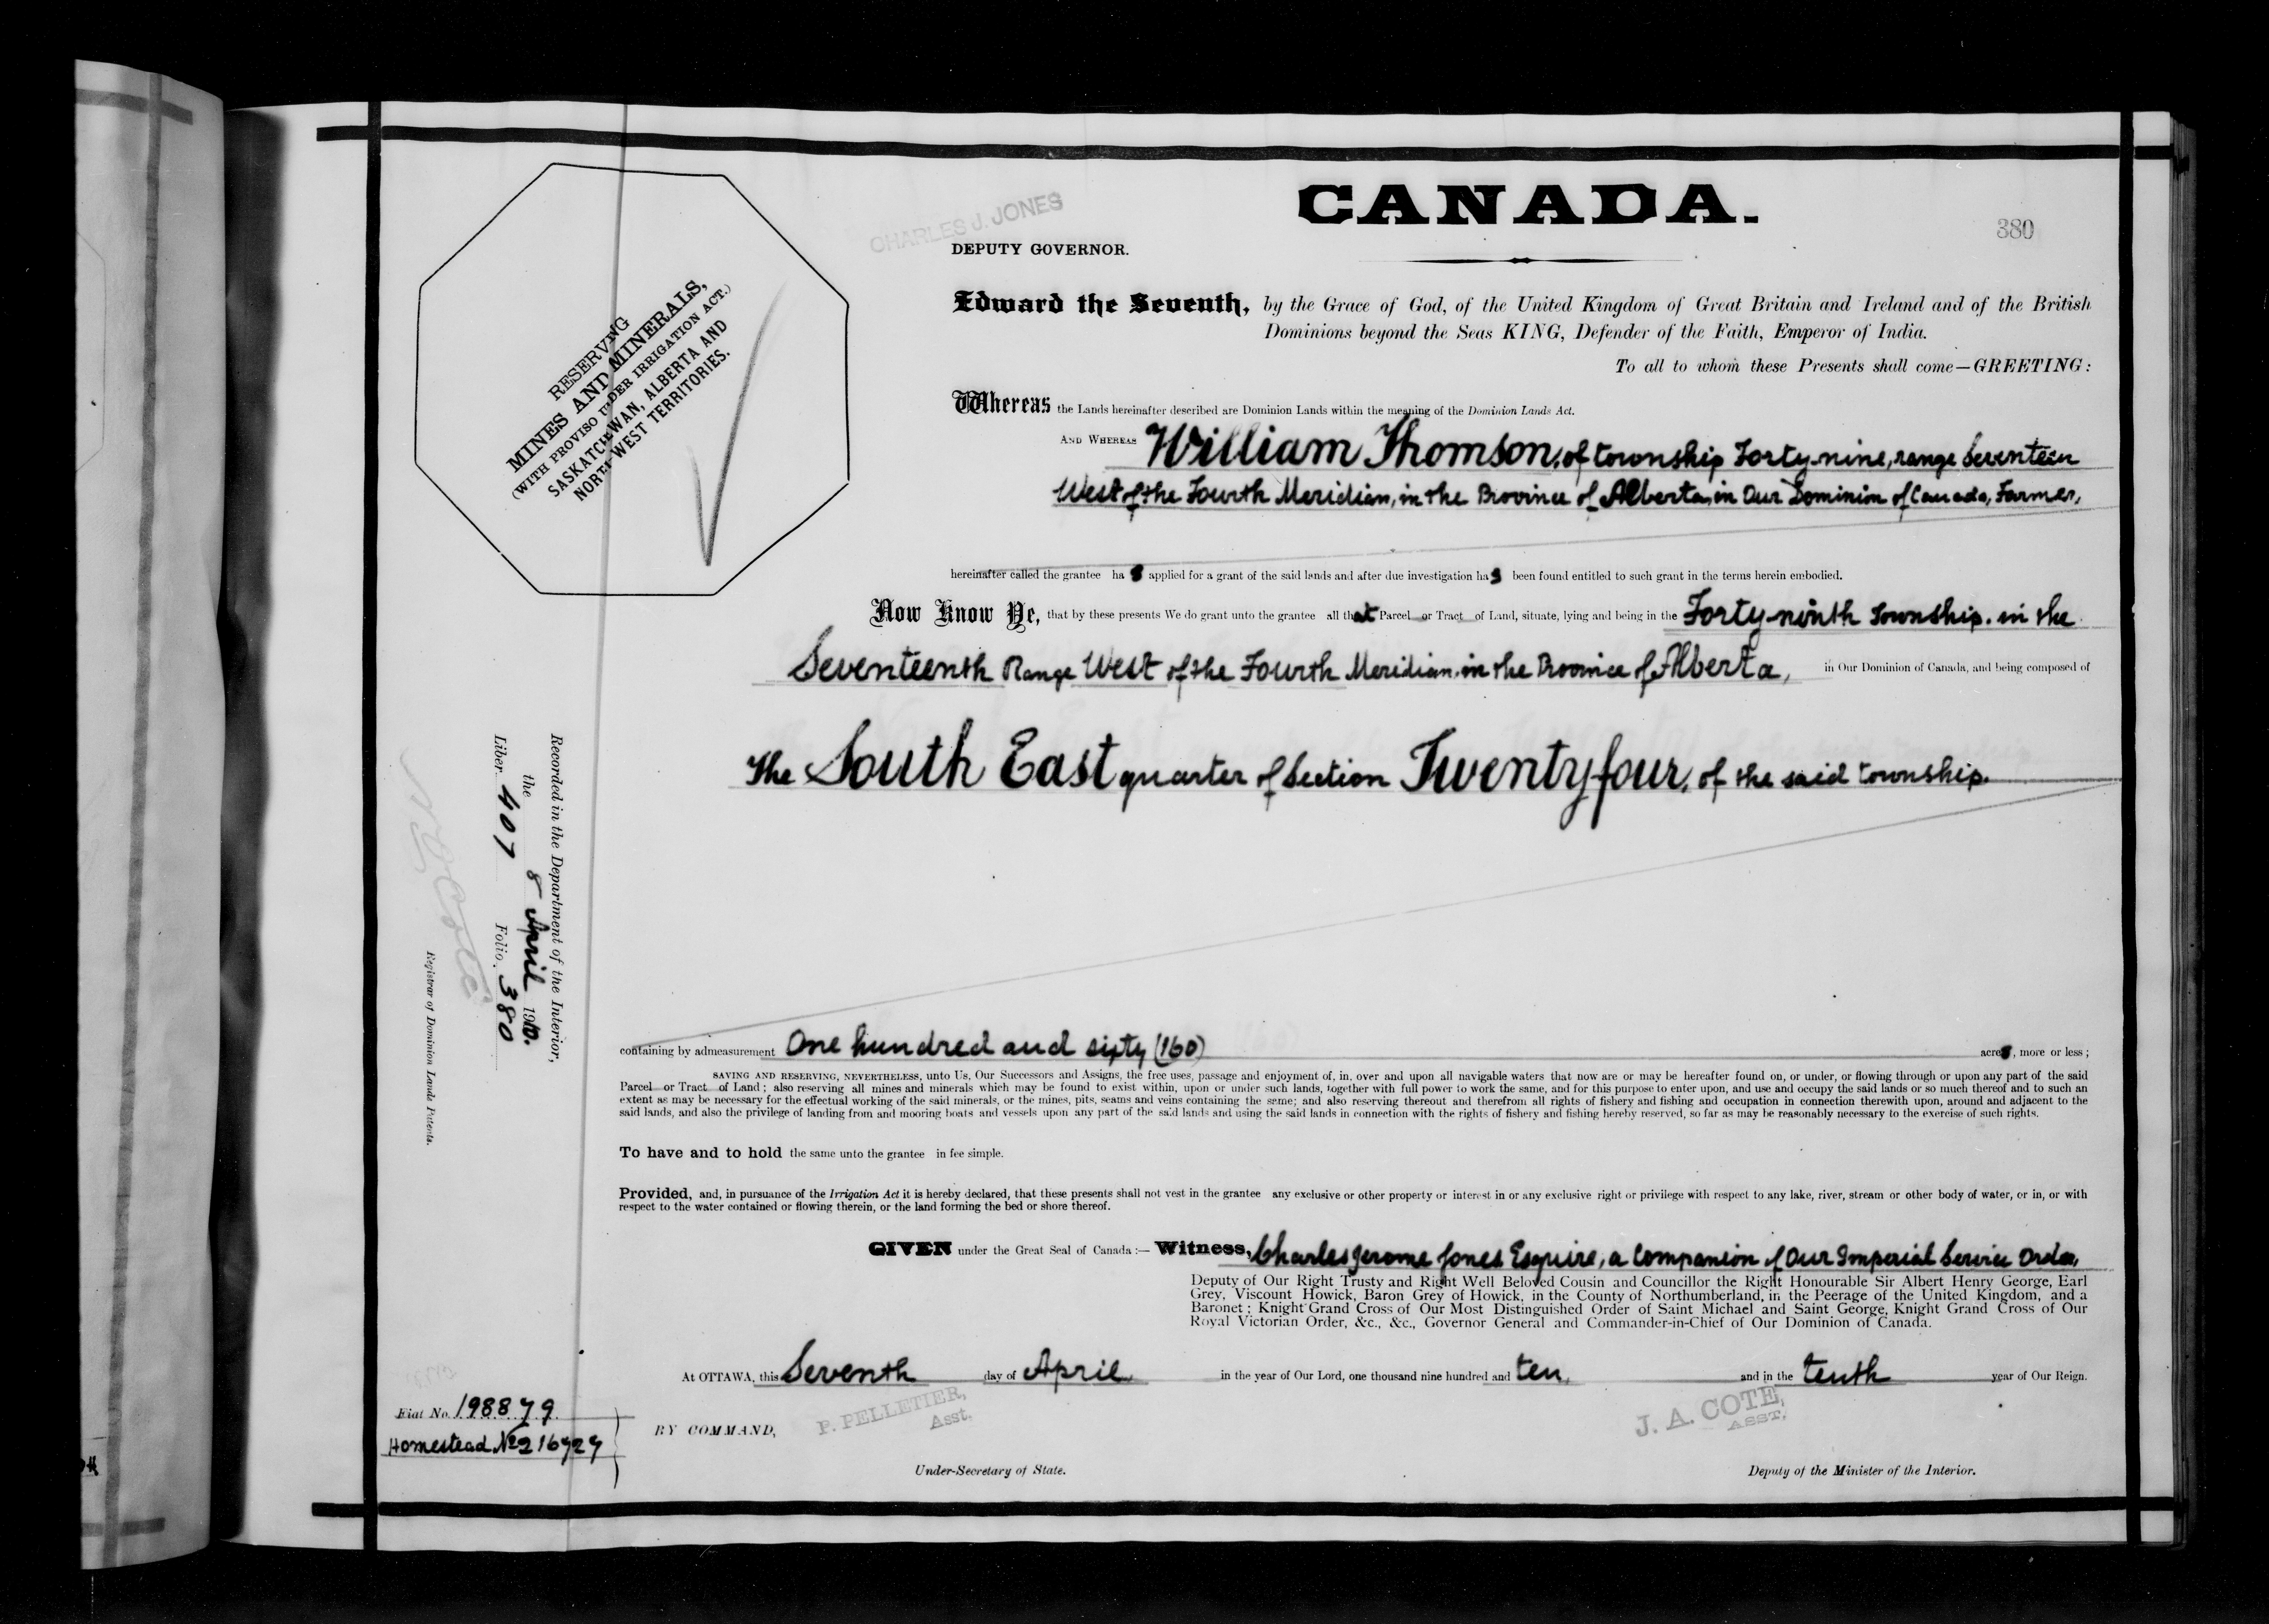 CANADA.
380
CHARLES J. JONES
DEPUTY GOVERNOR.
RESERVING
MINES AND MINERALS,
(WITH PROVISO UNDER IRRIGATION ACT.)
SASKATCHEWAN, ALBERTA AND
NORTH WEST TERRITORIES.
Edward the Seventh, by the Grace of God, of the United Kingdom of Great Britain and Ireland and of the British
Dominions beyond the Seas KING, Defender of the Faith, Emperor of India.
To all to whom these Presents shall come—GREETING:
Whereas the Lands hereinafter described are Dominion Lands within the meaning of the Dominion Lands Act.
AND WHEREAS William Thomson, of township Forty-nine, range Seventeen
West of the Fourth Meridian, in the Province of Alberta, in Our Dominion of Canada, Farmer,
hereinafter called the grantee has applied for a grant of the said lands and after due investigation has been found entitled to such grant in the terms herein embodied.
Now Know Ye, that by these presents We do grant unto the grantee all that Parcel or Tract of Land, situate, lying and being in the Forty-ninth Township, in the
Seventeenth Range West of the Fourth Meridian, in the Province of Alberta, in Our Dominion of Canada, and being composed of
The South East quarter of Section Twenty four, of the said township.
containing by admeasurement One hundred and sixty (160) acres, more or less;
SAVING AND RESERVING, NEVERTHELESS, unto Us, Our Successors and Assigns, the free uses, passage and enjoyment of, in, over and upon all navigable waters that now are or may be hereafter found on, or under, or flowing through or upon any part of the said
Parcel or Tract of Land; also reserving all mines and minerals which may be found to exist within, upon or under such lands, together with full power to work the same, and for this purpose to enter upon, and use and occupy the said lands or so much thereof and to such an
extent as may be necessary for the effectual working of the said minerals, or the mines, pits, seams and veins containing the same; and also reserving thereout and therefrom all rights of fishery and fishing and occupation in connection therewith upon, around and adjacent to the
said lands, and also the privilege of landing from and mooring boats and vessels upon any part of the said lands and using the said lands in connection with the rights of fishery and fishing hereby reserved, so far as may be reasonably necessary to the exercise of such rights.
To have and to hold the same unto the grantee in fee simple.
Provided, and, in pursuance of the Irrigation Act it is hereby declared, that these presents shall not vest in the grantee any exclusive or other property or interest in or any exclusive right or privilege with respect to any lake, river, stream or other body of water, or in, or with
respect to the water contained or flowing therein, or the land forming the bed or shore thereof.
GIVEN under the Great Seal of Canada:— Witness, Charles Jerome Jones Esquire, a Companion of Our Imperial Service Order,
Deputy of Our Right Trusty and Right Well Beloved Cousin and Councillor the Right Honourable Sir Albert Henry George, Earl
Grey, Viscount Howick, Baron Grey of Howick, in the County of Northumberland, in the Peerage of the United Kingdom, and a
Baronet; Knight Grand Cross of Our Most Distinguished Order of Saint Michael and Saint George, Knight Grand Cross of Our
Royal Victorian Order, &c., &c., Governor General and Commander-in-Chief of Our Dominion of Canada.
At OTTAWA, this Seventh day of April in the year of Our Lord, one thousand nine hundred and ten, and in the tenth year of Our Reign.
BY COMMAND,
P. PELLETIER,
Asst.
Under-Secretary of State.
J. A. COTE,
ASST.
Deputy of the Minister of the Interior.
Recorded in the Department of the Interior,
the 8 April 1910.
Liber 407 Folio 380
N O Coté
Registrar of Dominion Lands Patents.
Fiat No. 198879
Homestead No 216729